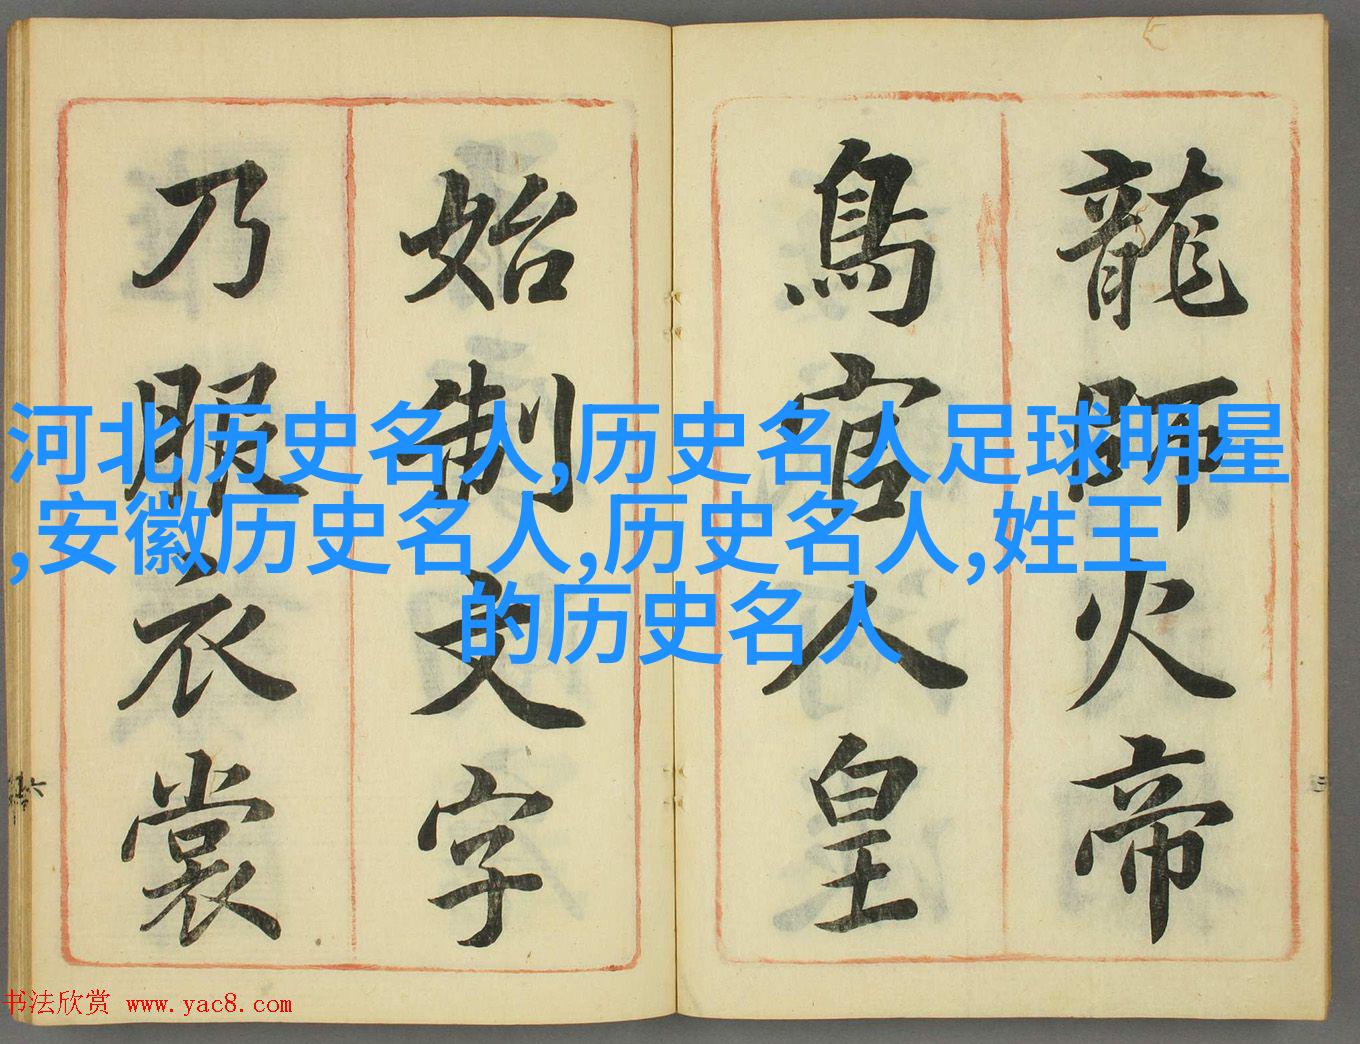 龍師火帝
鳥官人皇
始制文字
乃服衣裳
河北历史名人,历史名人足球明星
,安徽历史名人,历史名人,姓王
的历史名人
书法欣赏 www.yac8.com